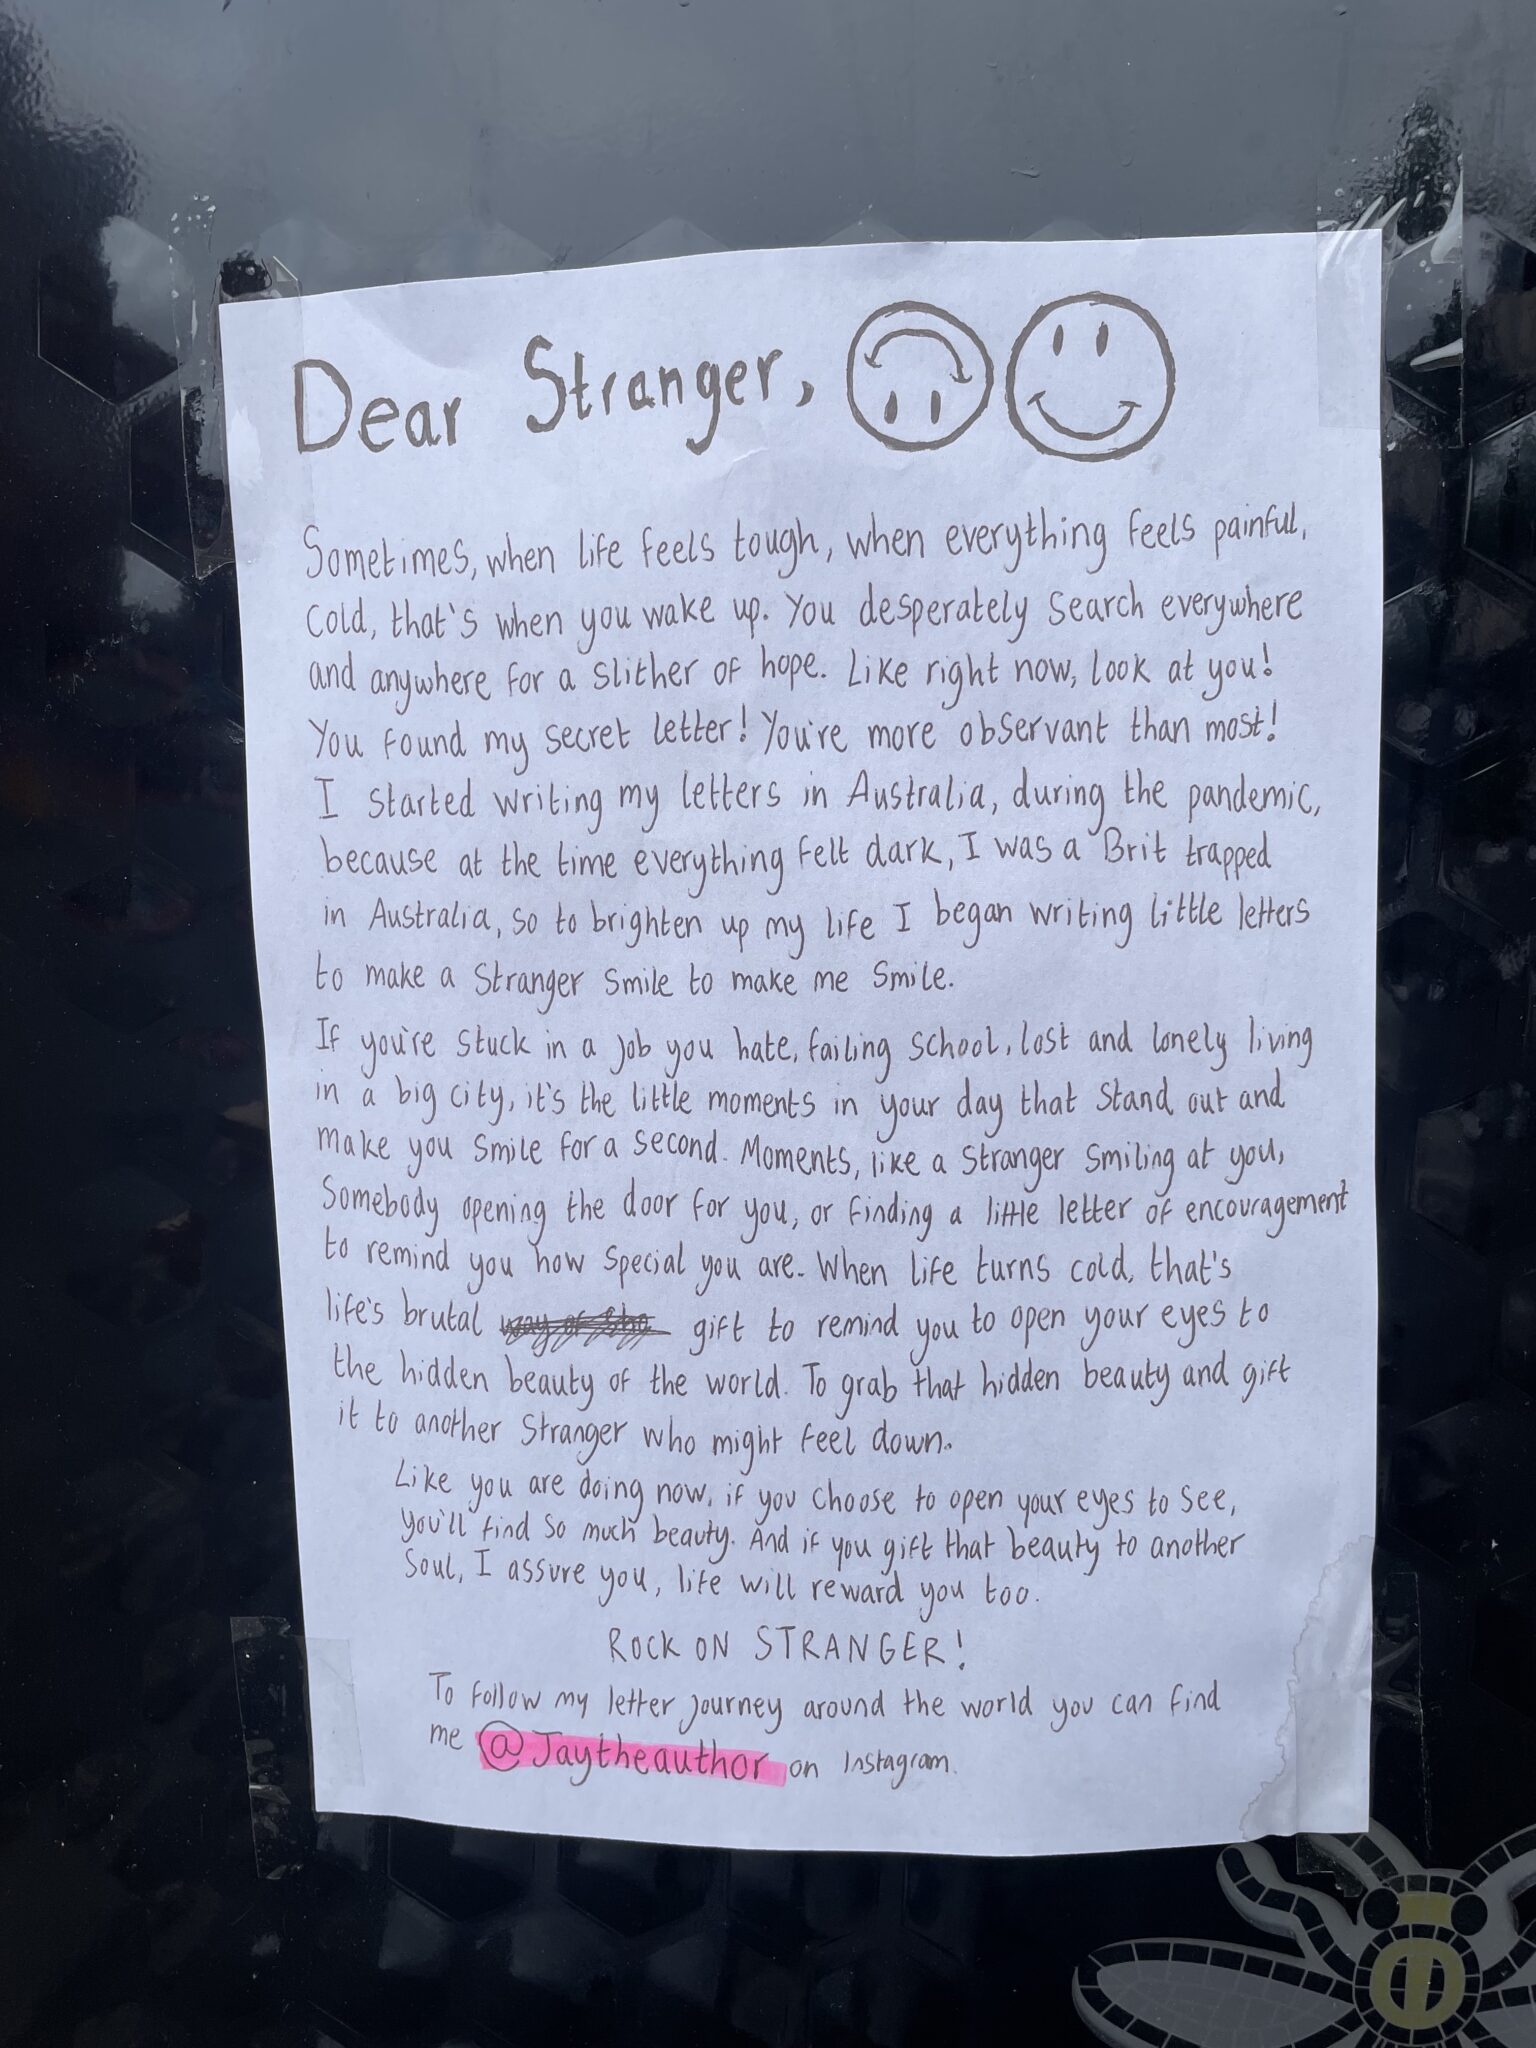 Dear Stranger,
Sometimes, when life feels tough, when everything feels painful,
cold, that's when you wake up. You desperately search everywhere
and anywhere for a slither of hope. Like right now, look at you!
You found my secret letter! You're more observant than most!
I started writing my letters in Australia, during the pandemic,
because at the time everything felt dark, I was a Brit trapped
in Australia, so to brighten up my life I began writing little letters
to make a stranger smile to make me smile.
If you're stuck in a job you hate, failing school, lost and lonely living
in a big city, it's the little moments in your day that stand out and
make you smile for a second. Moments, like a stranger smiling at you,
somebody opening the door for you, or finding a little letter of encouragement
to remind you how special you are. When life turns cold, that's
life's brutal gift to remind you to open your eyes to
the hidden beauty of the world. To grab that hidden beauty and gift
it to another stranger who might feel down.
Like you are doing now, if you choose to open your eyes to see,
you'll find so much beauty. And if you gift that beauty to another
soul, I assure you, life will reward you too.
ROCK ON STRANGER!
To follow my letter journey around the world you can find
me @Jaytheauthor on Instagram.